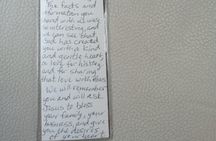 The facts and
information you
and
interesting, and
we can see that
God has created
you with a kind
and gentle heart,
a love for history
and for sharing
that love with others
We will remember
you and will ask
Jesus to bless
your family, your
business, and give
you the desires
of your heart